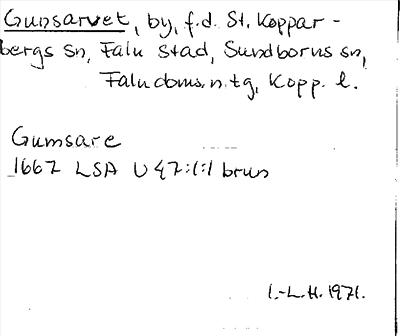 Gunsarvet, by, f.d. St. Koppar-
bergs sn, Falu stad, Sundborns sn,
Falu doms. n. tg, Kopp. l.
Gumsare
1667 LSA U 47:1:1 brun
I.-L.H. 1971.